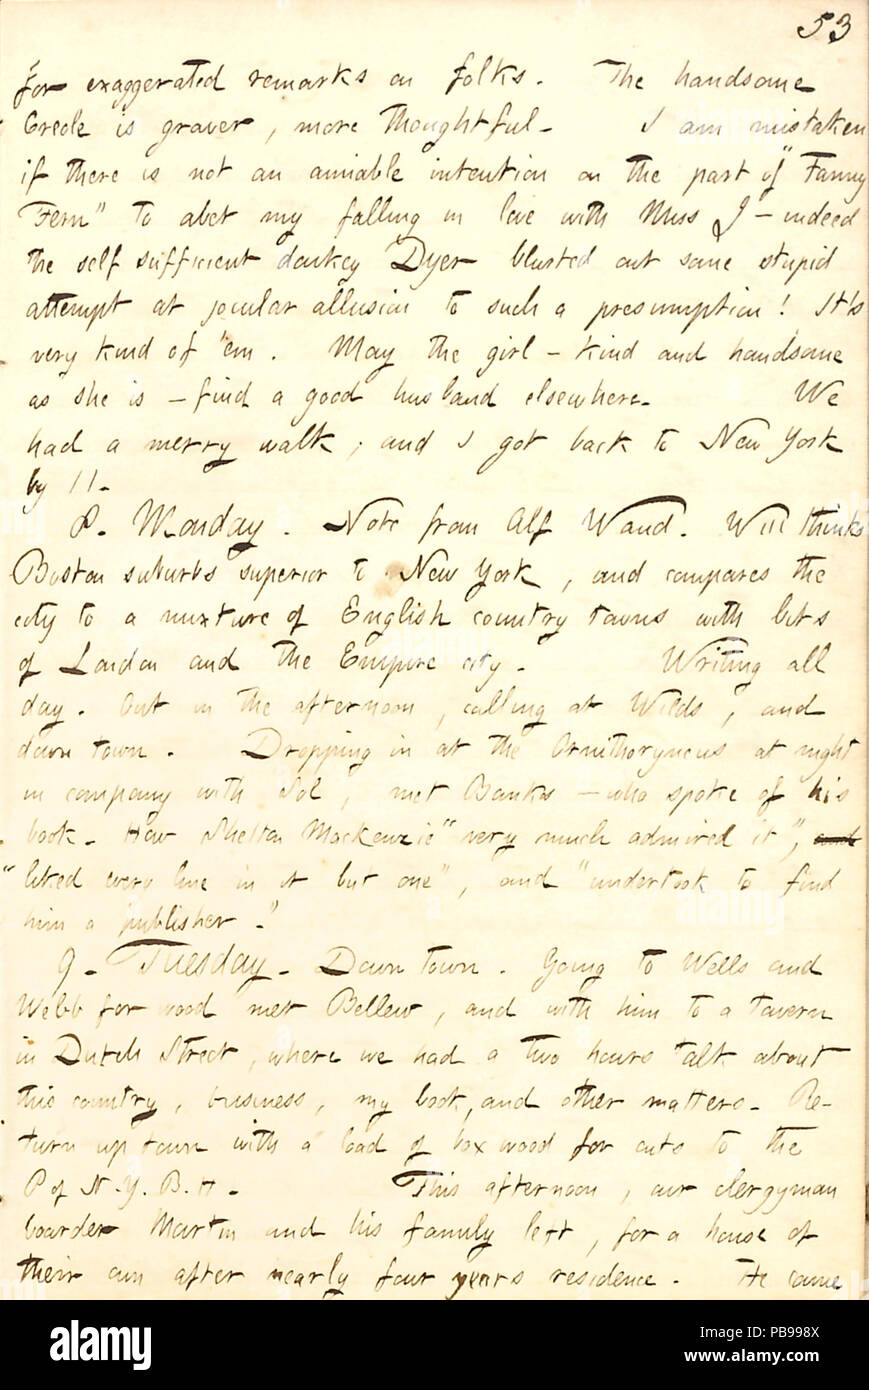 53
for exaggerated remarks on folks. The handsome
Creole is graver, more thoughtful. I am mistaken
if there is not an amiable intention on the part of "Fanny
Fern" to abet my falling in love with Miss J — indeed
the self sufficient donkey Dyer blurted out some stupid
attempt at jocular allusion to such a presumption! It's
very kind of 'em. May the girl — kind and handsome
as she is — find a good husband elsewhere. We
had a merry walk, and I got back to New York
by 11.
8. Monday. Note from Alf Waud. Will thinks
Boston suburbs superior to New York, and compares the
city to a mixture of English country towns with bits
of London and the Empire city. Writing all
day. Out in the afternoon, calling at Wilds, and
down town. Dropping in at the Ornithoryncus at night
in company with Sol, met Banks — who spoke of his
book. How Shelton Mackenzie "very much admired it", and
"liked every line in it but one", and "undertook to find
him a publisher."
9. Tuesday. Down town. Going to Wells and
Webb for wood met Bellew, and with him to a tavern
in Dutch Street, where we had a two hours talk about
this country, business, my book, and other matters. Re-
turn up town with a load of box wood for cuts to the
P of N.Y.B.H. This afternoon, our clergyman
boarder Martin and his family left, for a house of
their own after nearly four years residence. He came
alamy
Image ID: PB998X
www.alamy.com